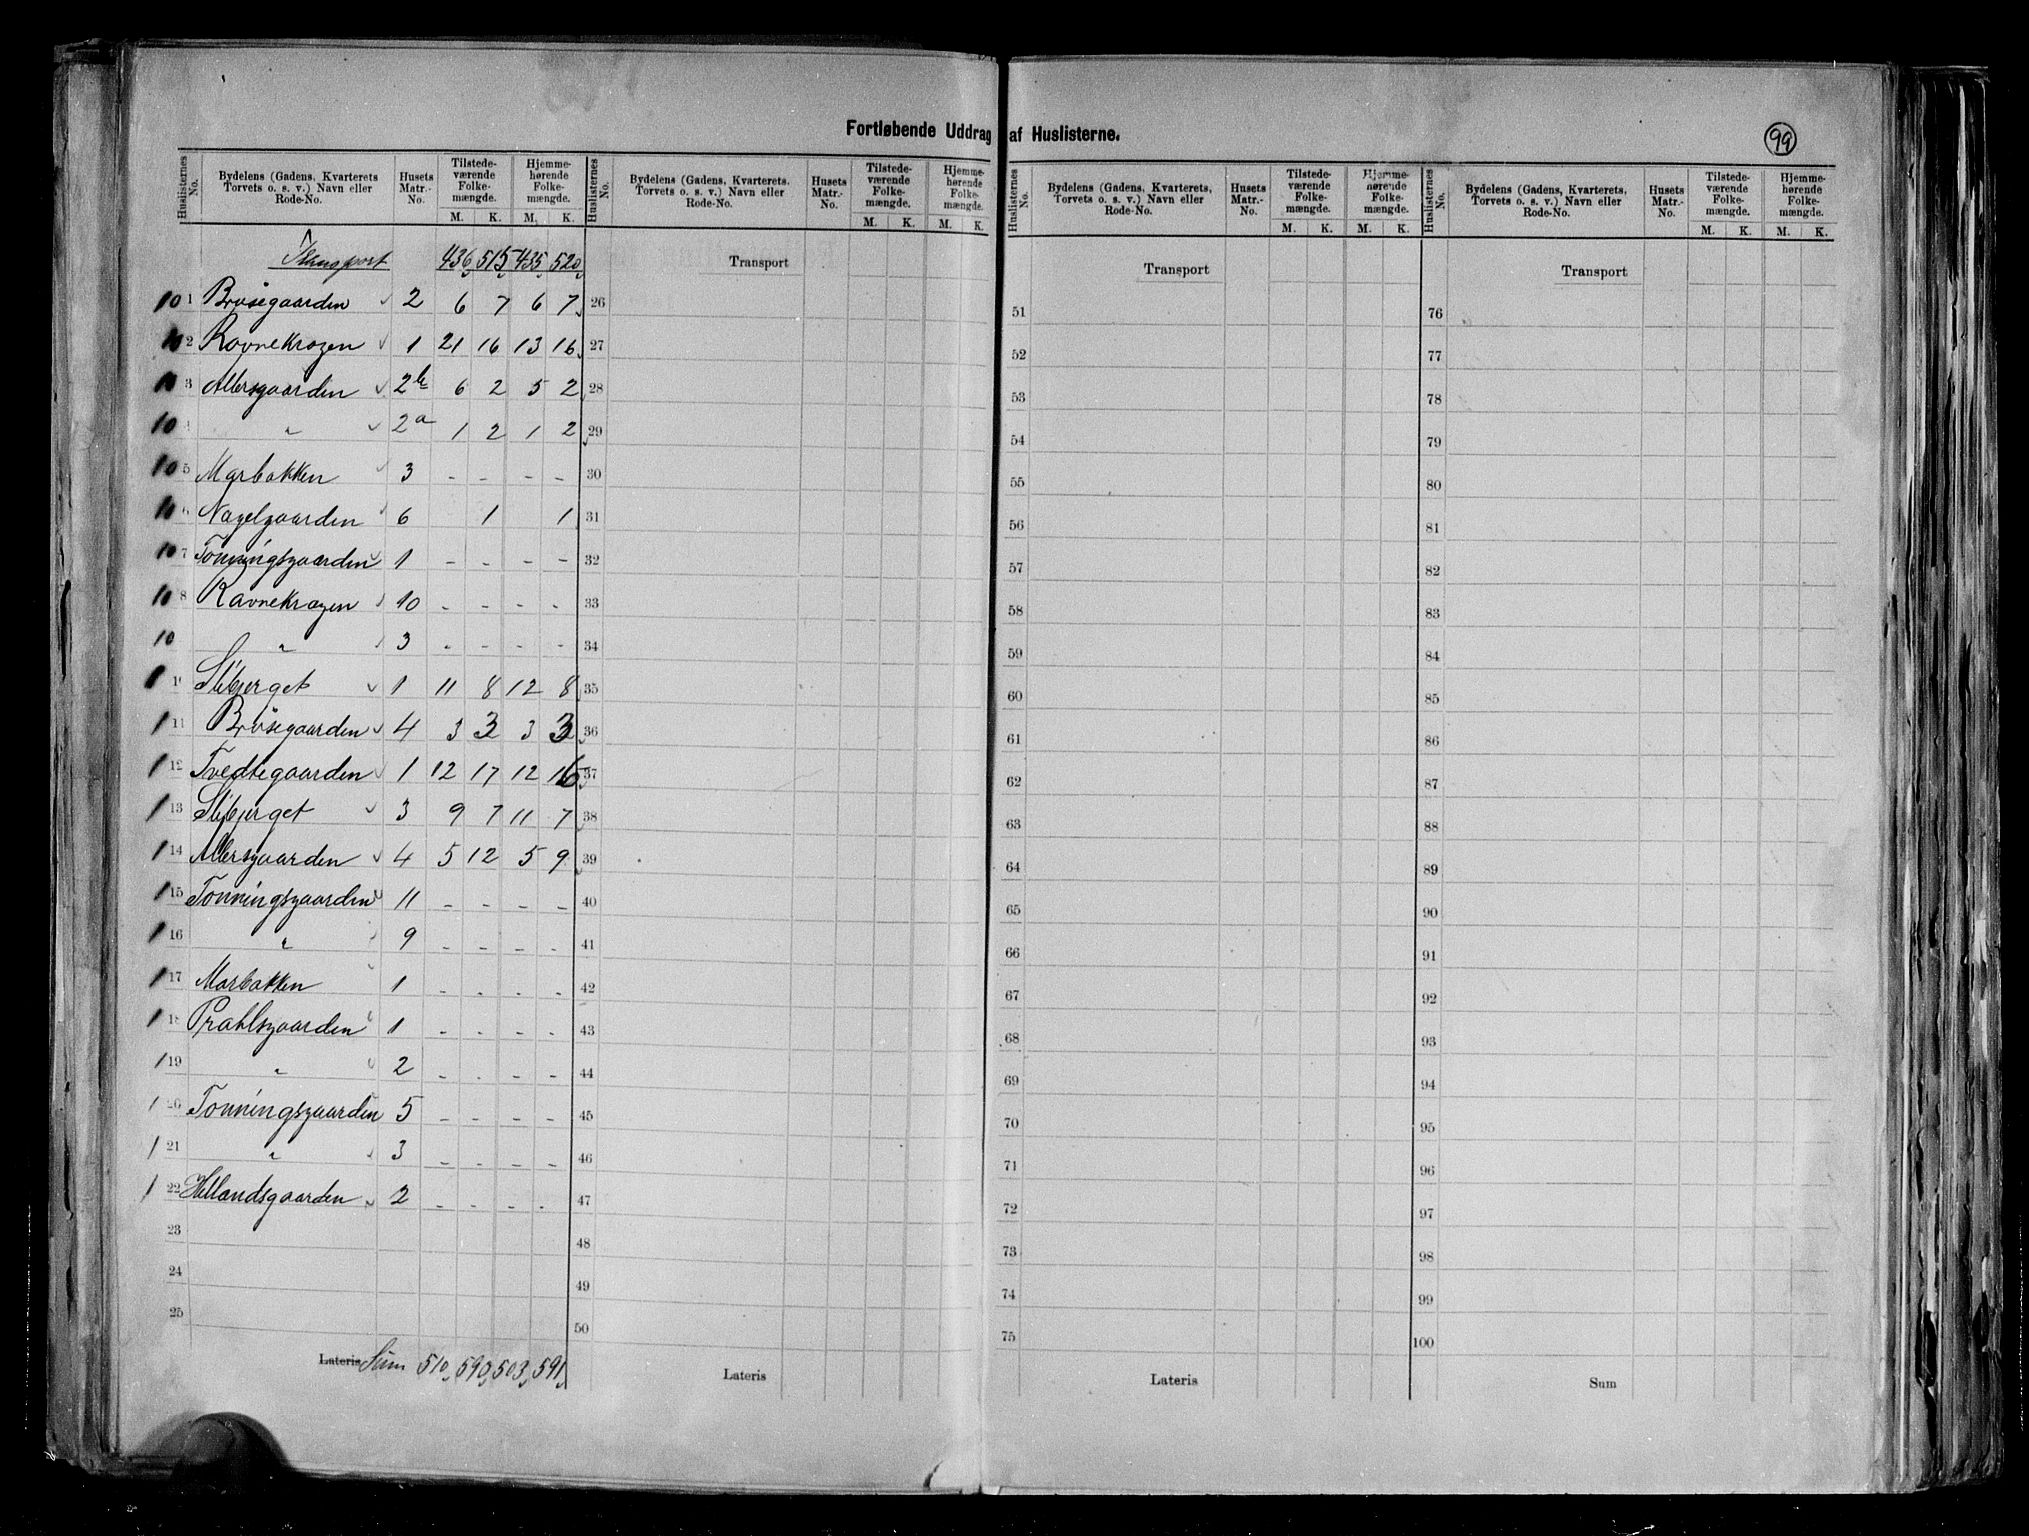 Fortløbende Uddrag af Huslisterne.
99
Huslisternes No. Bydelens (Gadens, Kvarterets Torvets o. s. v.) Navn eller Rode-No. Husets Matr.-No. Tilstedeværende Folkemængde. M. K. Hjemmehørende Folkemængde. M. K.
Transport 436 515 435 520
10 1 Brøsegaarden 2 6 7 6 7
10 2 Ravnekrogen 1 21 16 13 16
10 3 Albersgaarden 2b 6 2 5 2
10 4 " 2a 1 2 1 2
10 5 Marbakken 3 - - - -
10 6 Nagelgaarden 6 1 1
10 7 Tonningsgaarden 1 - - - -
10 8 Ravnekrogen 10 - - - -
10 " 3 - - - -
10 Slibjerget 1 11 8 12 8
1 11 Brøsegaarden 4 3 3 3 3
1 12 Tvedtegaarden 1 12 17 12 16
1 13 Slibjerget 3 9 7 11 7
1 14 Albersgaarden 4 5 12 5 9
1 15 Tonningsgaarden 11 - - - -
1 16 " 9 - - - -
1 17 Marbakken 1 - - - -
1 18 Prahlsgaarden 1 - - - -
1 19 " 2 - - - -
1 20 Tonningsgaarden 5 - - - -
1 21 " 3 - - - -
1 22 Hellandsgaarden 2 - - - -
23
24
25
Lateris Sum 510 590 503 591
Huslisternes No. Bydelens (Gadens, Kvarterets, Torvets o. s. v.) Navn eller Rode-No. Husets Matr.-No. Tilstedeværende Folkemængde. M. K. Hjemmehørende Folkemængde. M. K.
Transport
26
27
28
29
30
31
32
33
34
35
36
37
38
39
40
41
42
43
44
45
46
47
48
49
50
Lateris
Huslisternes No. Bydelens (Gadens, Kvarterets, Torvets o. s. v.) Navn eller Rode-No. Husets Matr.-No. Tilstedeværende Folkemængde. M. K. Hjemmehørende Folkemængde. M. K.
Transport
51
52
53
54
55
56
57
58
59
60
61
62
63
64
65
66
67
68
69
70
71
72
73
74
75
Lateris
Huslisternes No. Bydelens (Gadens, Kvarterets, Torvets o. s. v.) Navn eller Rode-No. Husets Matr.-No. Tilstedeværende Folkemængde. M. K. Hjemmehørende Folkemængde. M. K.
Transport
76
77
78
79
80
81
82
83
84
85
86
87
88
89
90
91
92
93
94
95
96
97
98
99
100
Sum